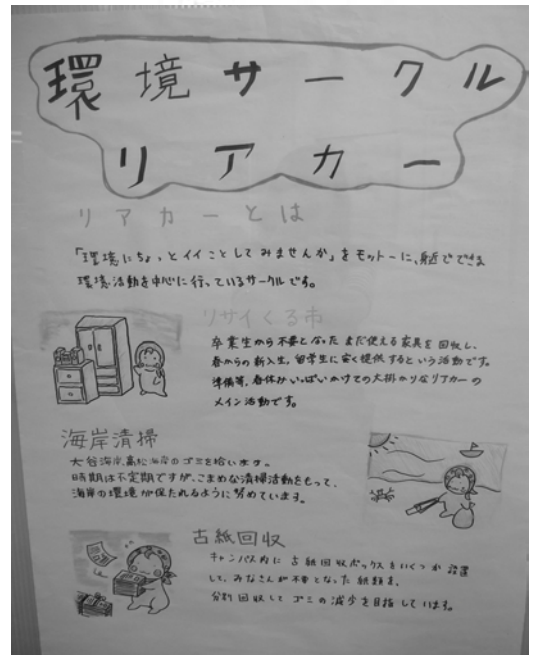 環境サークル
リアカー
リアカーとは
「環境にちょっとイイことしてみませんか」をモットーに、身近でできる
環境活動を中心に行っているサークルです。
リサイくる市
卒業生から不要となったまだ使える家具を回収し、
春からの新入生、留学生に安く提供するという活動です。
準備等、春休みいっぱいかけての大掛かりなリアカーの
メイン活動です。
海岸清掃
大谷海岸、高松海岸のゴミを拾います。
時期は不定期ですが、こまめな清掃活動をもって、
海岸の環境が保たれるように努めています。
古紙回収
キャンパス内に古紙回収ボックスをいくつか設置
して、みなさんが不要となった紙類を、
分別回収してゴミの減少を目指しています。